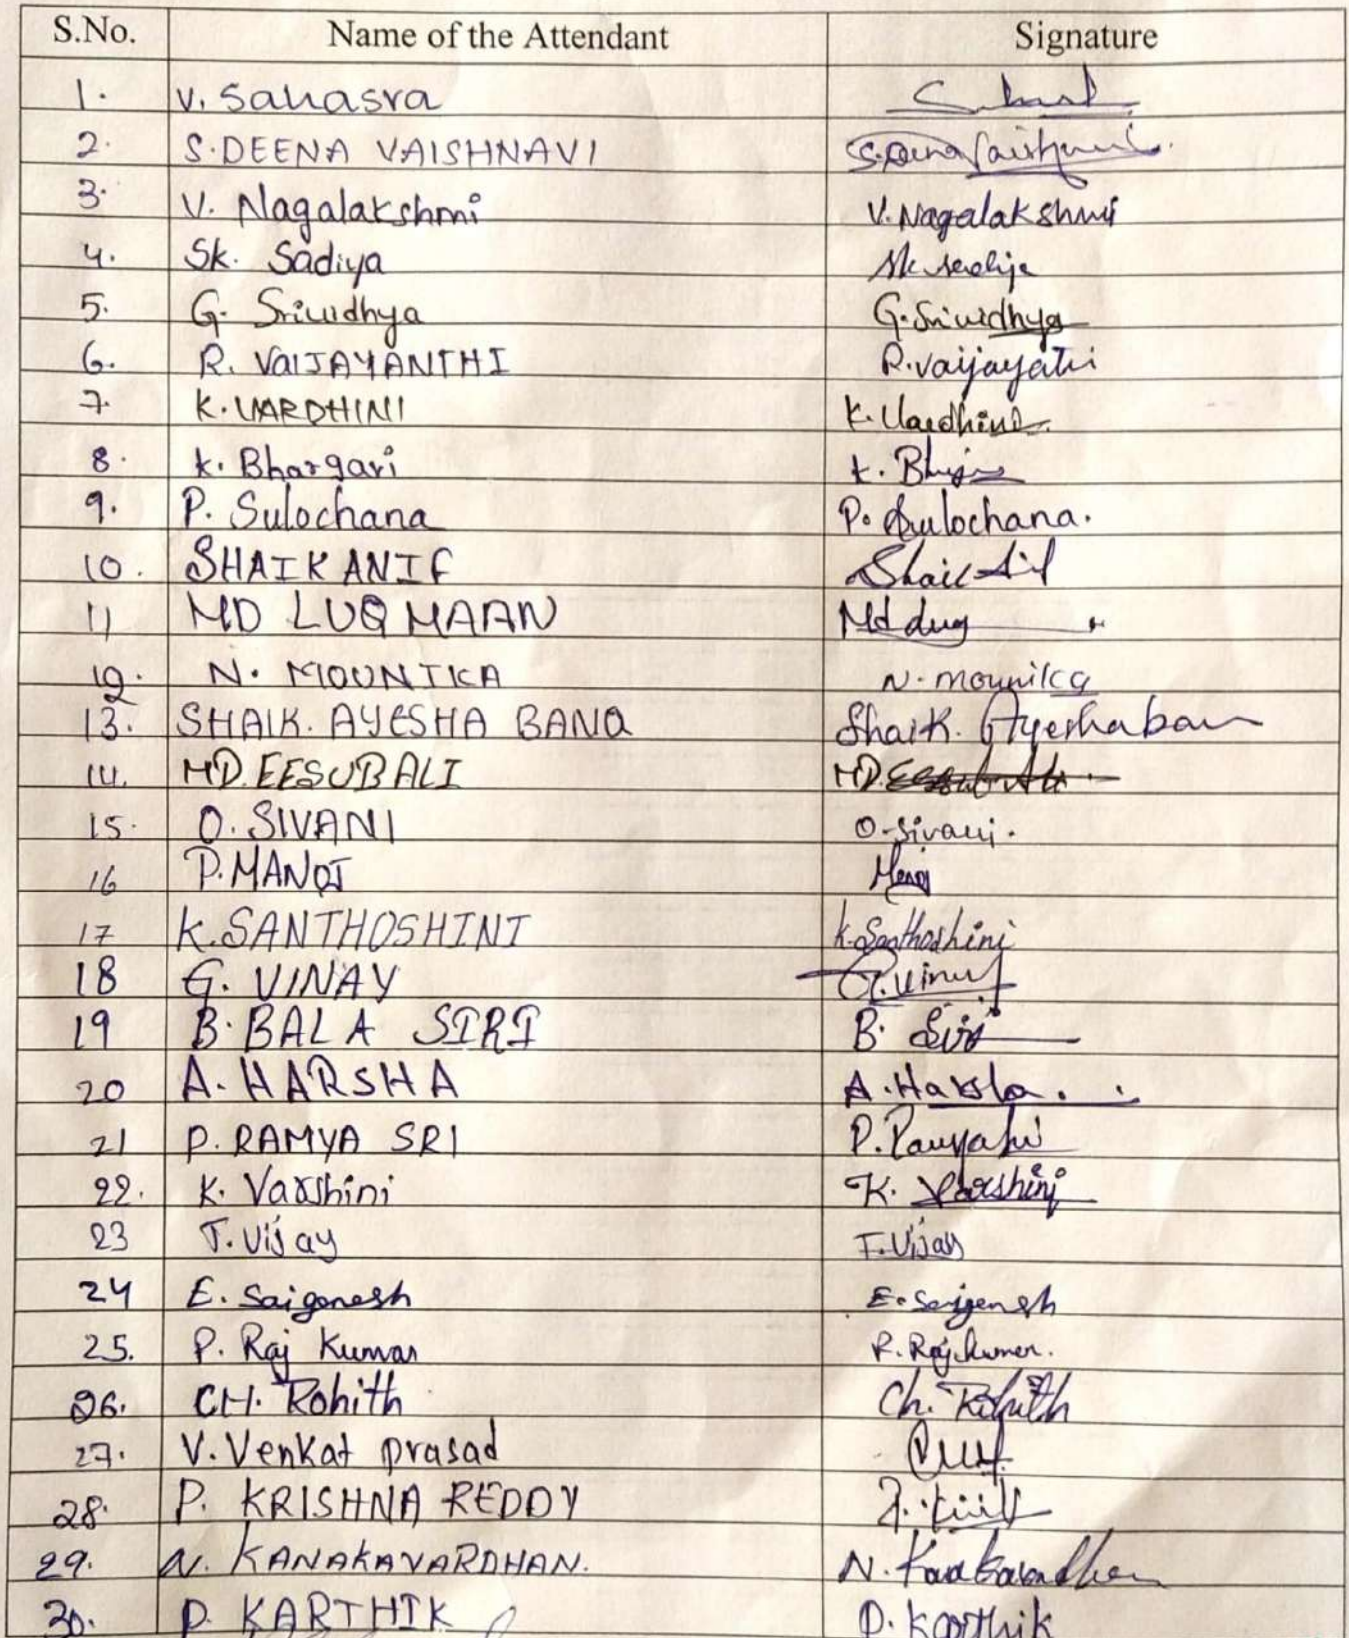 S.No. Name of the Attendant Signature
1. V. Sahasra
2. S.DEENA VAISHNAVI S.Deena Vaishnavi
3. V. Nagalakshmi V.Nagalakshmi
4. Sk. Sadiya Sk Sadiya
5. G. Srividhya G.Srividhya
6. R. VAIJAYANTHI R.vaijayathi
7. K.VARDHINI K.Vardhini
8. K. Bhargavi K.
9. P. Sulochana P. Sulochana.
10. SHAIK ANIF Shaik
11 MD LUQMAAN Md
12. N. MOUNIKA N.mounika
13. SHAIK. AYESHA BANO Shaik. Ayesha
14. MD.EESUBALI MD.
15. O.SIVANI O.Sivani.
16 P.MANOJ Manoj
17 K.SANTHOSHINI K.Santhoshini
18 G. VINAY G.Vinay
19 B.BALA SIRI B. Siri
20 A. HARSHA A.Harsha.
21 P. RAMYA SRI P.
22. K. Varshini K. Varshini
23 T. Vijay T.Vijay
24 E. Saiganesh E. Saiganesh
25. P. Raj Kumar P. Rajkumar.
26. CH. Rohith Ch. Rohith
27. V. Venkat prasad
28. P. KRISHNA REDDY
29. N. KANAKAVARDHAN. N.
30. P. KARTHIK P. Karthik